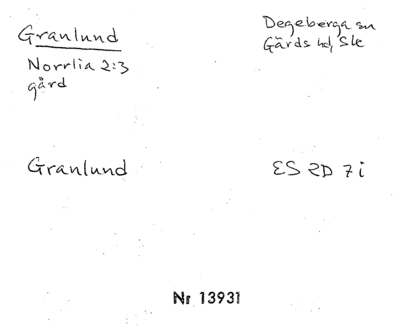 Granlund
Degeberga sn
Gärds hd, Sk
Norrlia 2:3
gård
Granlund
ES 2D 7i
Nr 13931